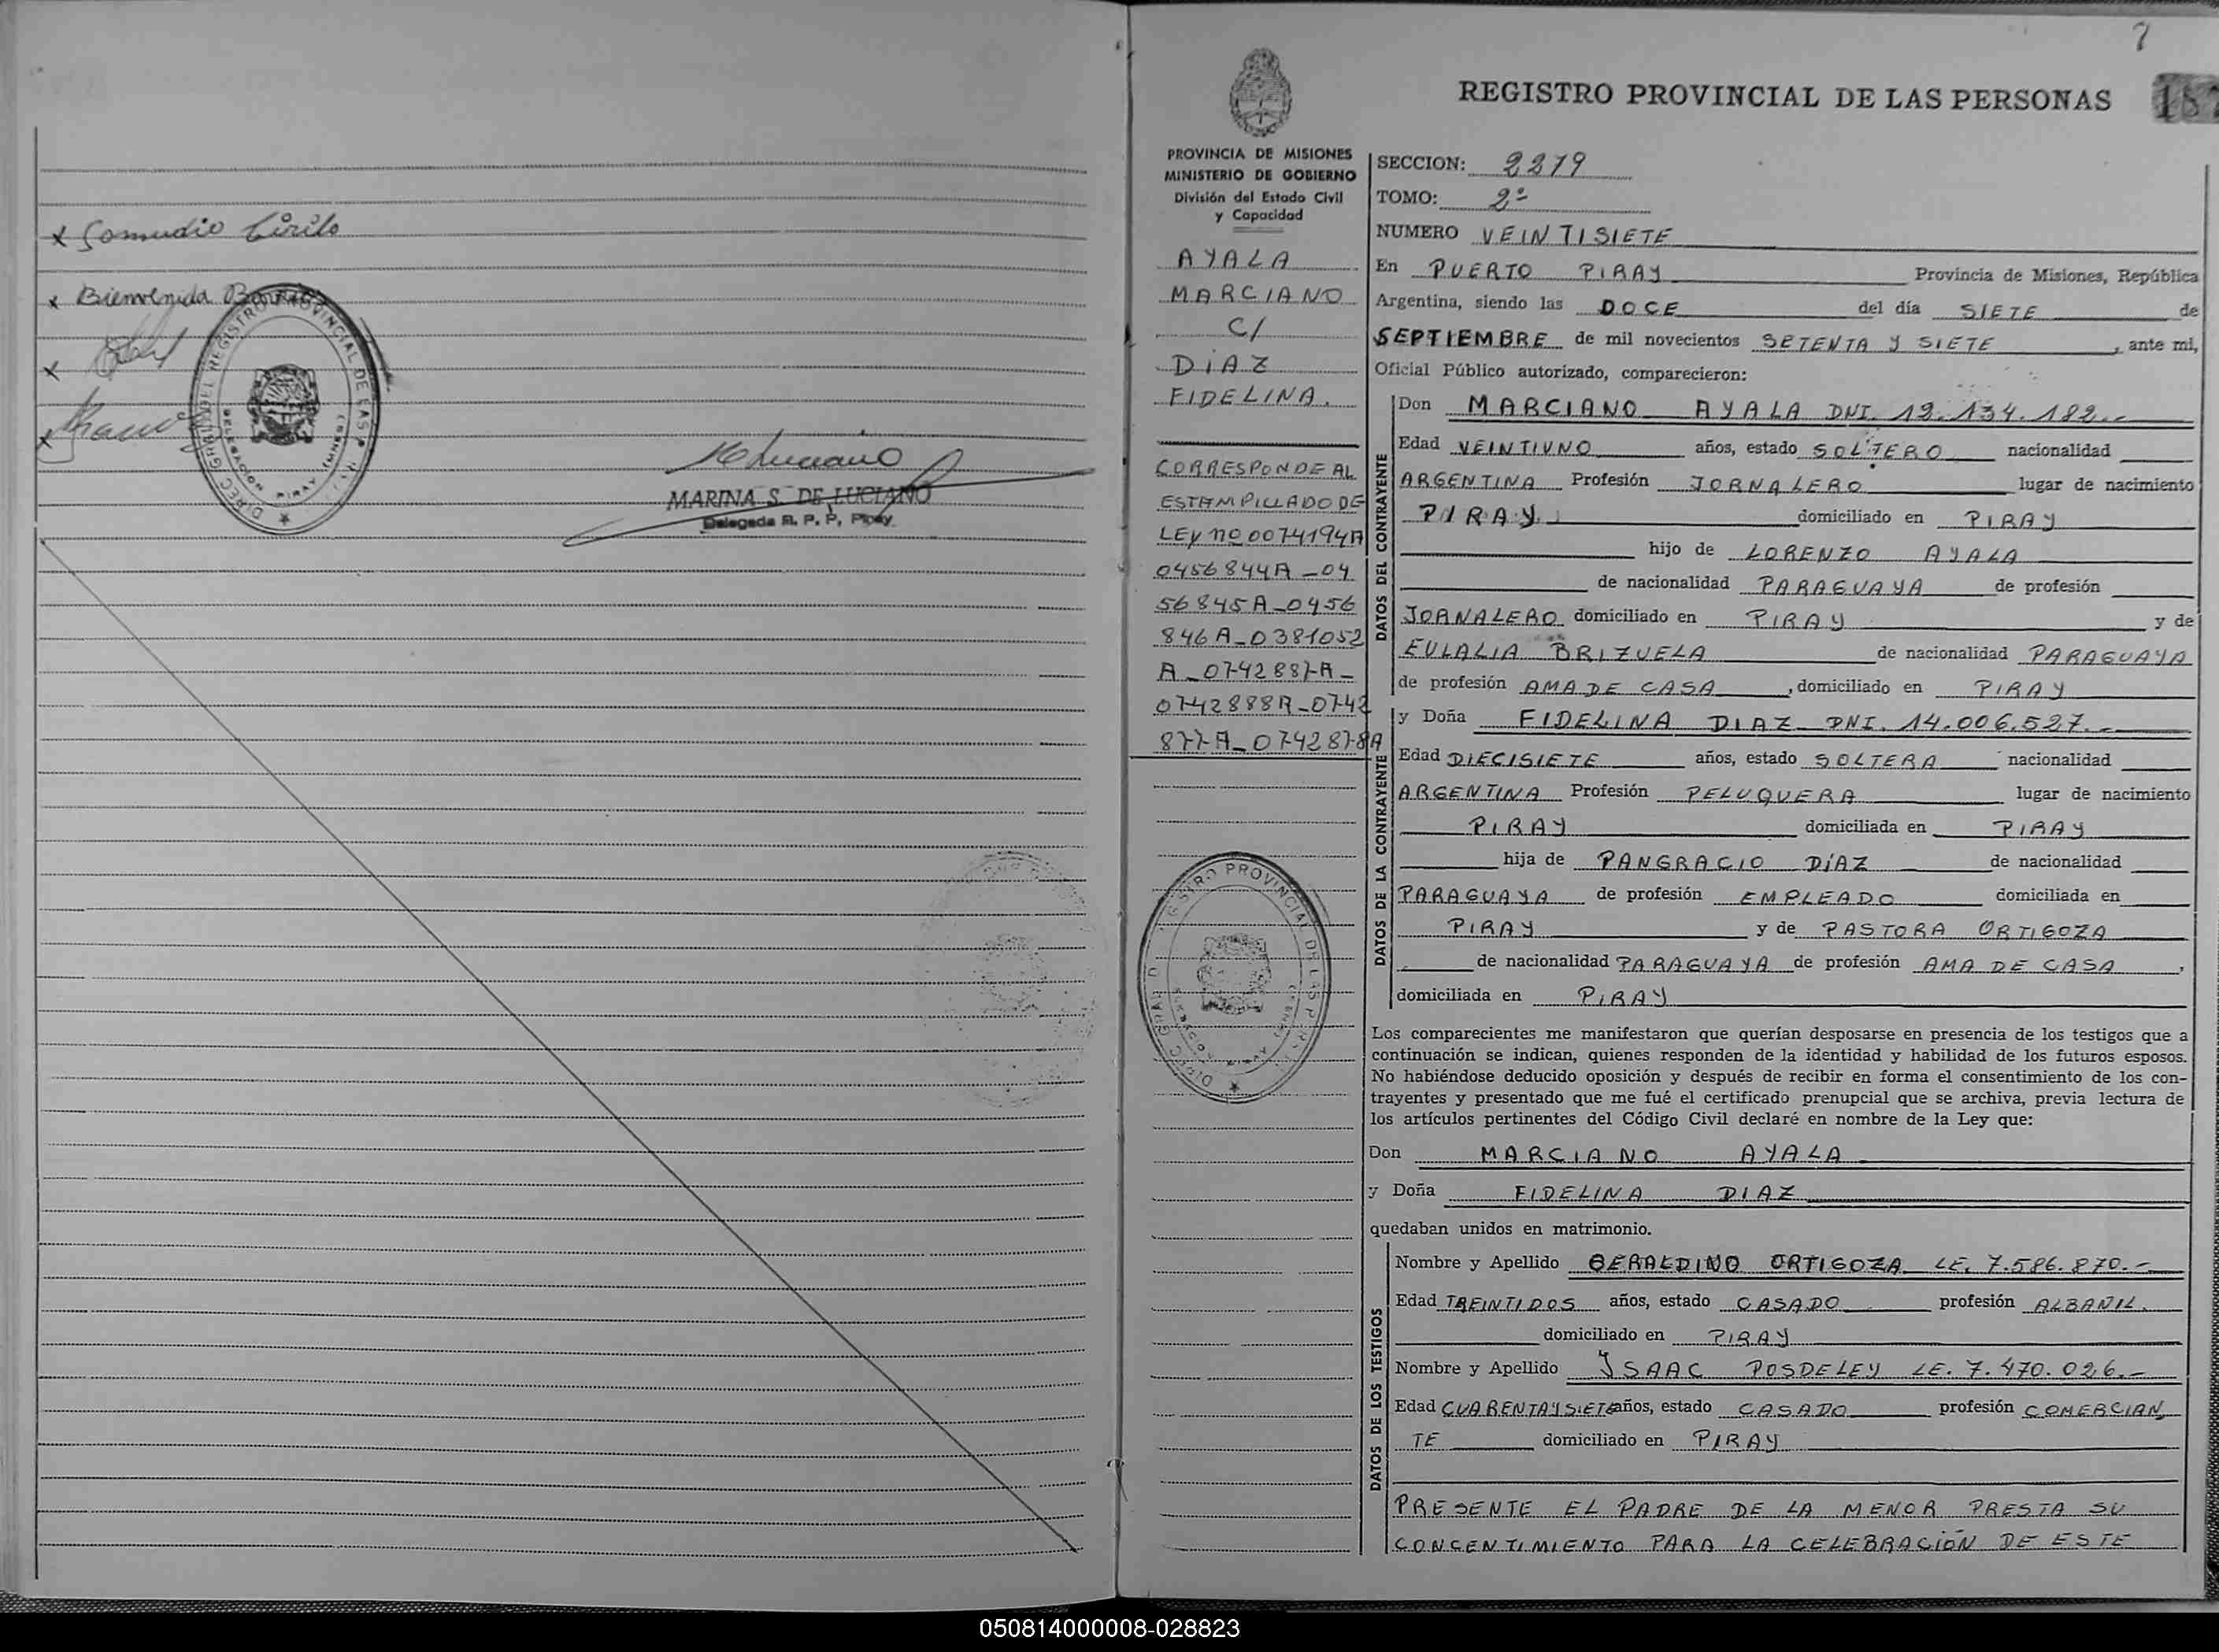 Somudio Cirilo
Bienvenida
MARINA S. DE LUCIANO
Delegada R. P. P. Piray
7
REGISTRO PROVINCIAL DE LAS PERSONAS
187
PROVINCIA DE MISIONES
MINISTERIO DE GOBIERNO
División del Estado Civil
y Capacidad
AYALA
MARCIANO
C/
DiAZ
FIDELINA.
CORRESPONDE AL
ESTAMPILLADO DE
LEY no 0074194A
0456844A_04
56845A_0456
846A_0381052
A_0742887A_
0742888A_0742
877A_0742878A
SECCION: 2279
TOMO: 2º
NUMERO VEINTISIETE
En PUERTO PIRAY Provincia de Misiones, República
Argentina, siendo las DOCE del día SIETE de
SEPTIEMBRE de mil novecientos SETENTA Y SIETE, ante mi,
Oficial Público autorizado, comparecieron:
DATOS DEL CONTRAYENTE
Don MARCIANO AYALA DNI. 12.134.182.-
Edad VEINTIUNO años, estado SOLTERO nacionalidad
ARGENTINA Profesión JORNALERO lugar de nacimiento
PIRAY domiciliado en PIRAY
hijo de LORENZO AYALA
de nacionalidad PARAGUAYA de profesión
JORNALERO domiciliado en PIRAY y de
EULALIA BRIZUELA de nacionalidad PARAGUAYA
de profesión AMA DE CASA, domiciliado en PIRAY
DATOS DE LA CONTRAYENTE
y Doña FIDELINA DIAZ DNI. 14.006.527.-
Edad DIECISIETE años, estado SOLTERA nacionalidad
ARGENTINA Profesión PELUQUERA lugar de nacimiento
PIRAY domiciliada en PIRAY
hija de PANGRACIO DíAZ de nacionalidad
PARAGUAYA de profesión EMPLEADO domiciliada en
PIRAY y de PASTORA ORTIGOZA
de nacionalidad PARAGUAYA de profesión AMA DE CASA,
domiciliada en PiRAY
Los comparecientes me manifestaron que querían desposarse en presencia de los testigos que a
continuación se indican, quienes responden de la identidad y habilidad de los futuros esposos.
No habiéndose deducido oposición y después de recibir en forma el consentimiento de los con-
trayentes y presentado que me fué el certificado prenupcial que se archiva, previa lectura de
los artículos pertinentes del Código Civil declaré en nombre de la Ley que:
Don MARCIANO AYALA
y Doña FIDELINA DIAZ
quedaban unidos en matrimonio.
DATOS DE LOS TESTIGOS
Nombre y Apellido GERALDINO ORTIGOZA LE. 7.586.870.-
Edad TREINTIDOS años, estado CASADO profesión ALBANIL.
domiciliado en PIRAY
Nombre y Apellido YSAAC POSDELEY LE. 7.470.026.-
Edad CUARENTAYSIETE años, estado CASADO profesión COMERCIAN
TE domiciliado en PIRAY
PRESENTE EL PADRE DE LA MENOR PRESTA SU
CONCENTIMIENTO PARA LA CELEBRACIÓN DE ESTE
050814000008-028823